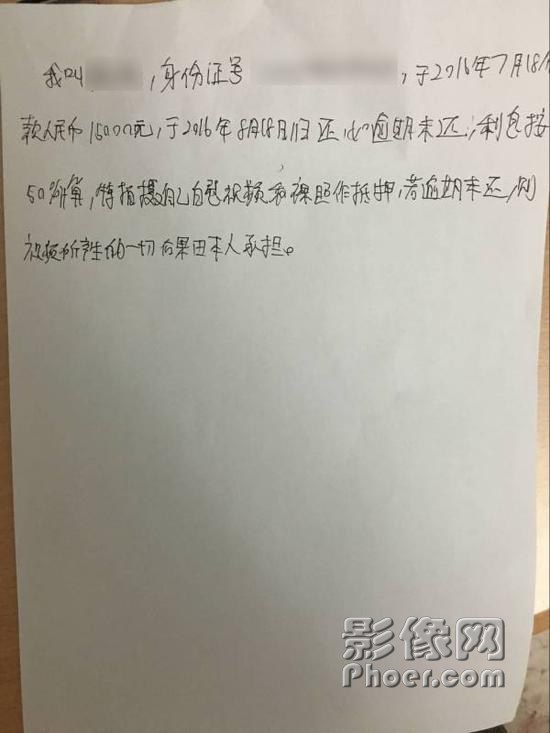 我叫 ，身份证号 ，于2016年7月18
款人民币15000元，于2016年8月18日还，如逾期未还，利息按
50%计算，特拍摄自己自慰视频和裸照作抵押，若逾期未还，则
视频所产生的一切后果由本人承担。
影像网
Phoer.com